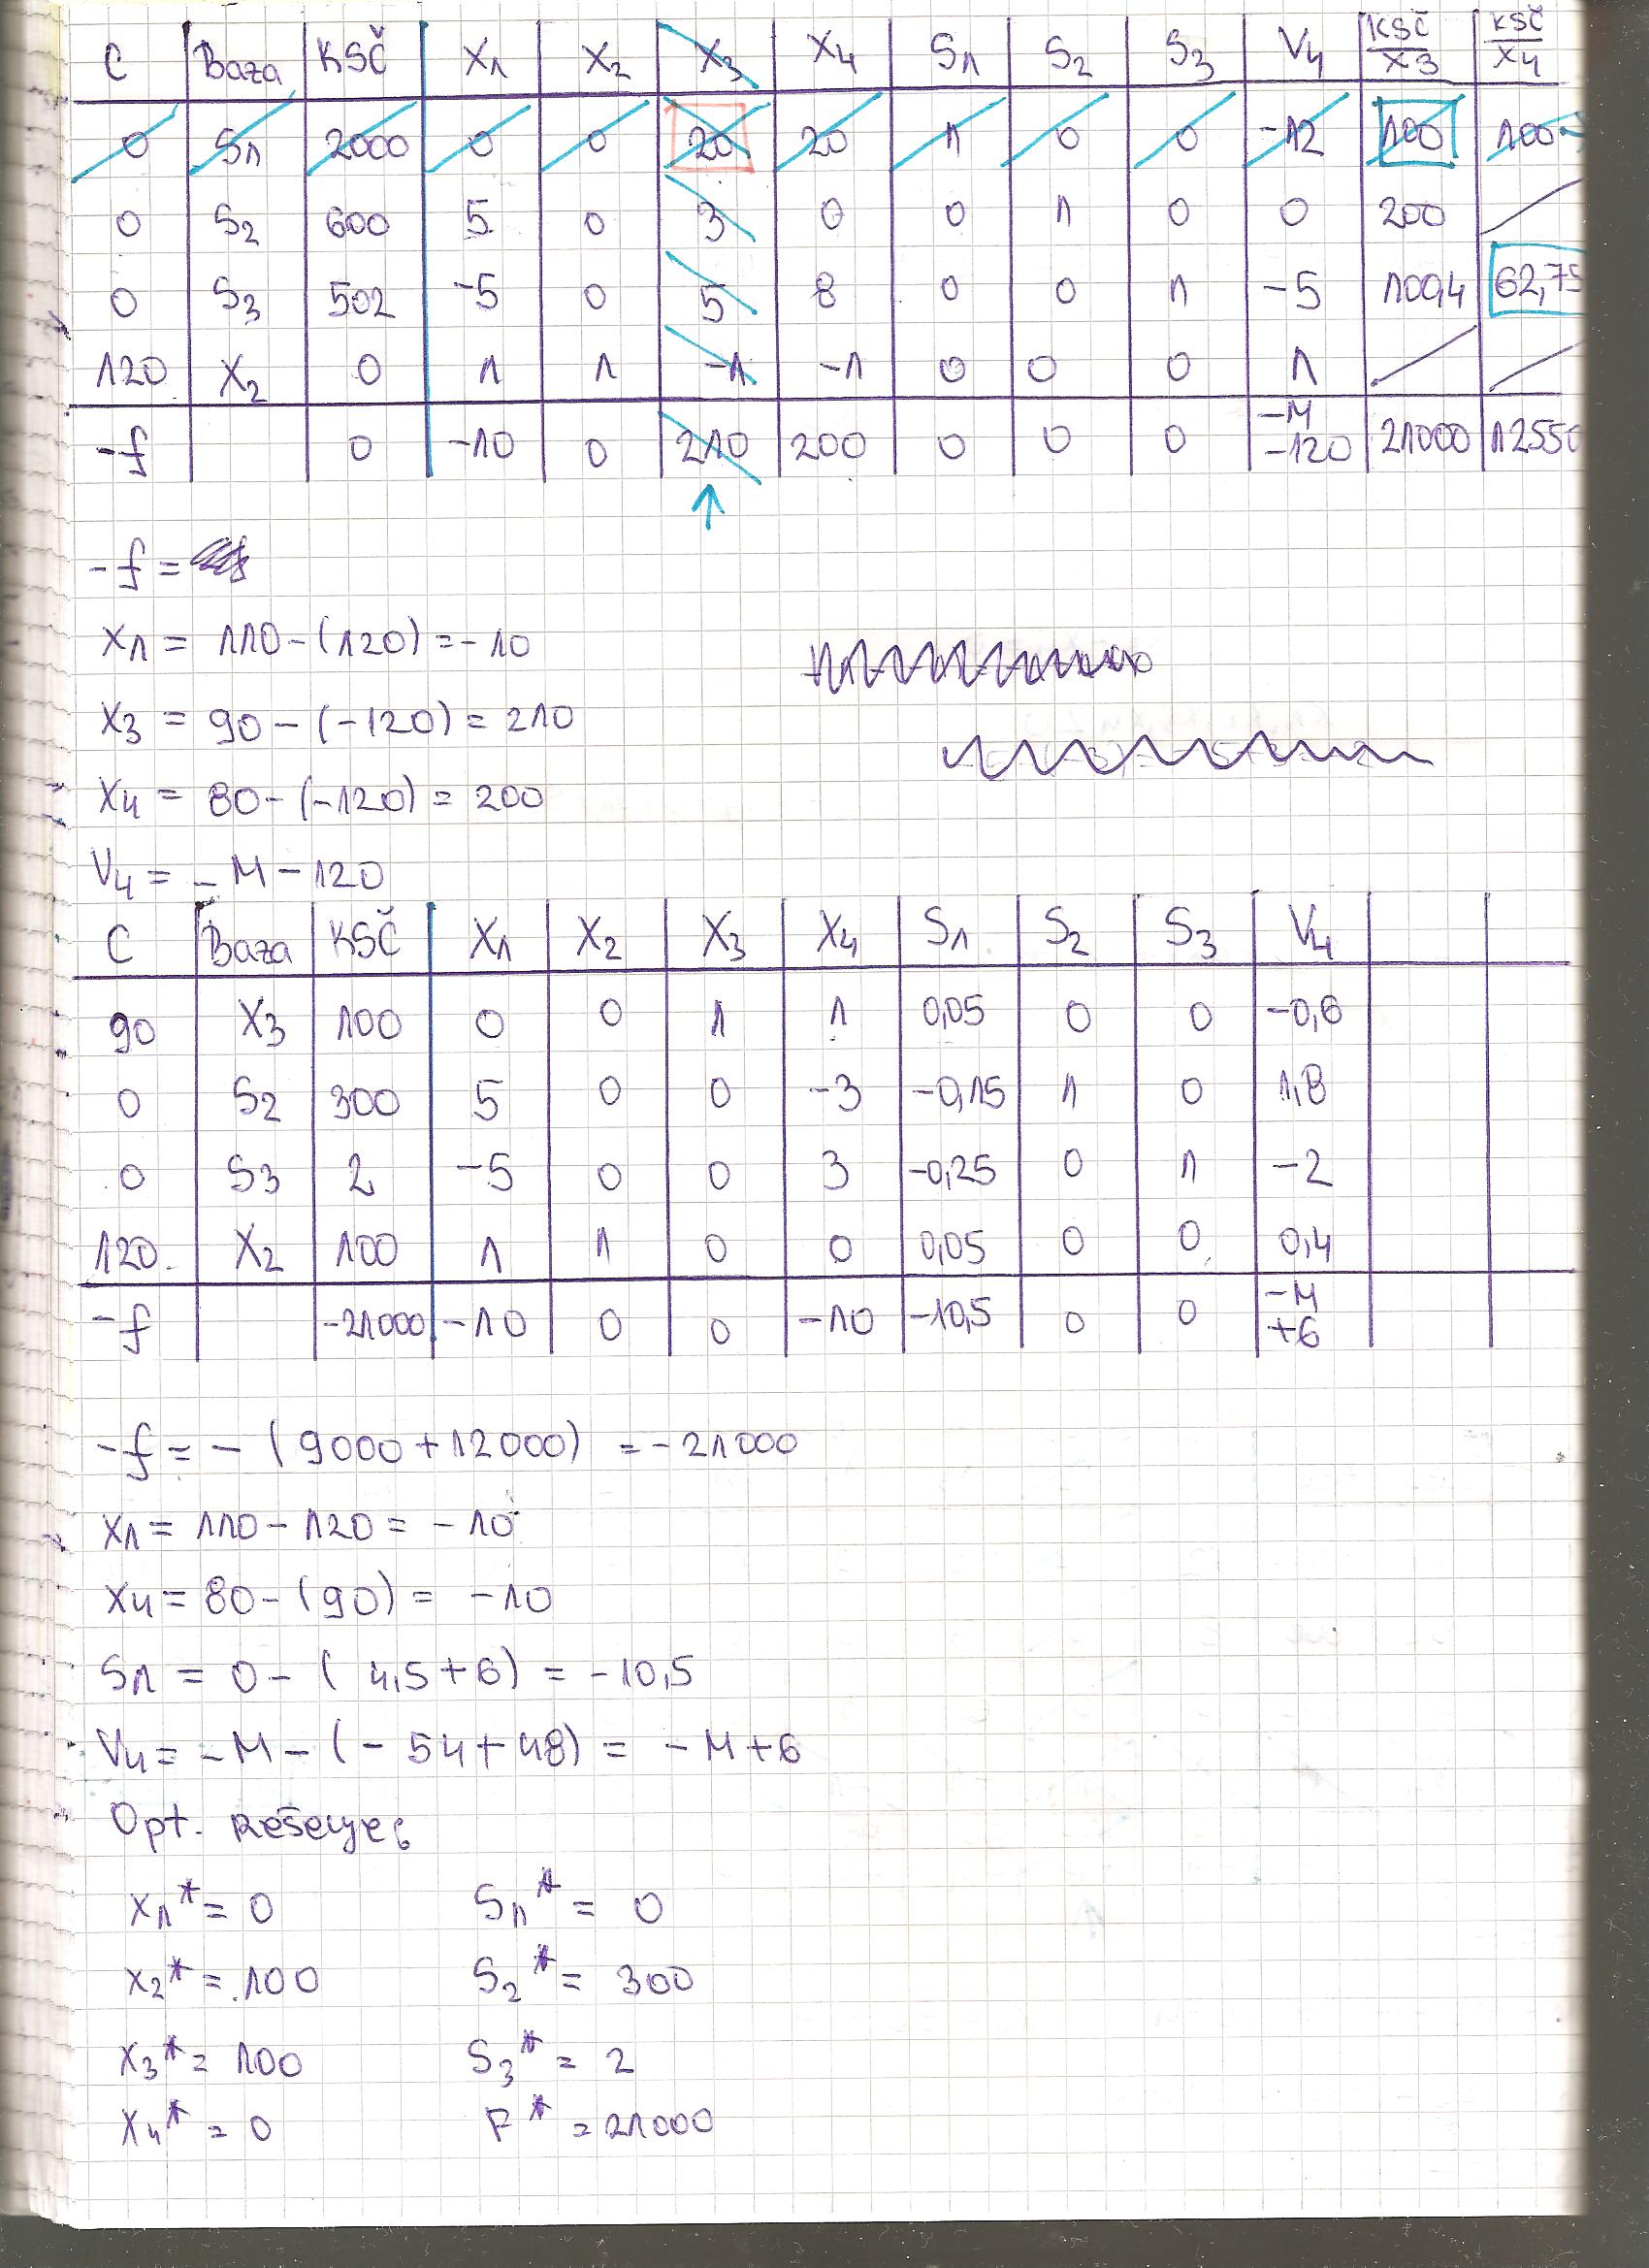 C Baza KSČ X1 X2 X3 X4 S1 S2 S3 V4 KSČ/X3 KSČ/X4
0 S1 2000 0 0 20 20 1 0 0 -12 100 100
0 S2 600 5 0 3 0 0 1 0 0 200
0 S3 502 -5 0 5 8 0 0 1 -5 100,4 62,75
120 X2 0 1 1 -1 -1 0 0 0 1
-f 0 -10 0 210 200 0 0 0 -M -120 21000 12550
-f =
X1 = 110-(120) = -10
X3 = 90-(-120) = 210
X4 = 80-(-120) = 200
V4 = -M-120
C Baza KSČ X1 X2 X3 X4 S1 S2 S3 V4
90 X3 100 0 0 1 1 0,05 0 0 -0,6
0 S2 300 5 0 0 -3 -0,15 1 0 1,8
0 S3 2 -5 0 0 3 -0,25 0 1 -2
120 X2 100 1 1 0 0 0,05 0 0 0,4
-f -21000 -10 0 0 -10 -10,5 0 0 -M +6
-f = -(9000+12000) = -21000
X1 = 110-120 = -10
X4 = 80-(90) = -10
S1 = 0-(4,5+6) = -10,5
V4 = -M-(-54+48) = -M+6
Opt. Rešenje:
X1* = 0 S1* = 0
X2* = 100 S2* = 300
X3* = 100 S3* = 2
X4* = 0 F* = 21000